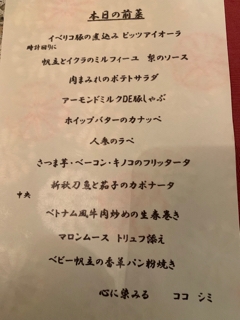 本日の前菜
イベリコ豚の煮込み ピッツアイオーラ
時計回りに
帆立とイクラのミルフィーユ 梨のソース
肉まみれのポテトサラダ
アーモンドミルクDE豚しゃぶ
ホイップバターのカナッペ
人参のラペ
さつま芋・ベーコン・キノコのフリッタータ
中央
新秋刀魚と茄子のカポナータ
ベトナム風牛肉炒めの生春巻き
マロンムース トリュフ添え
ベビー帆立の香草パン粉焼き
心に染みる ココ シミ